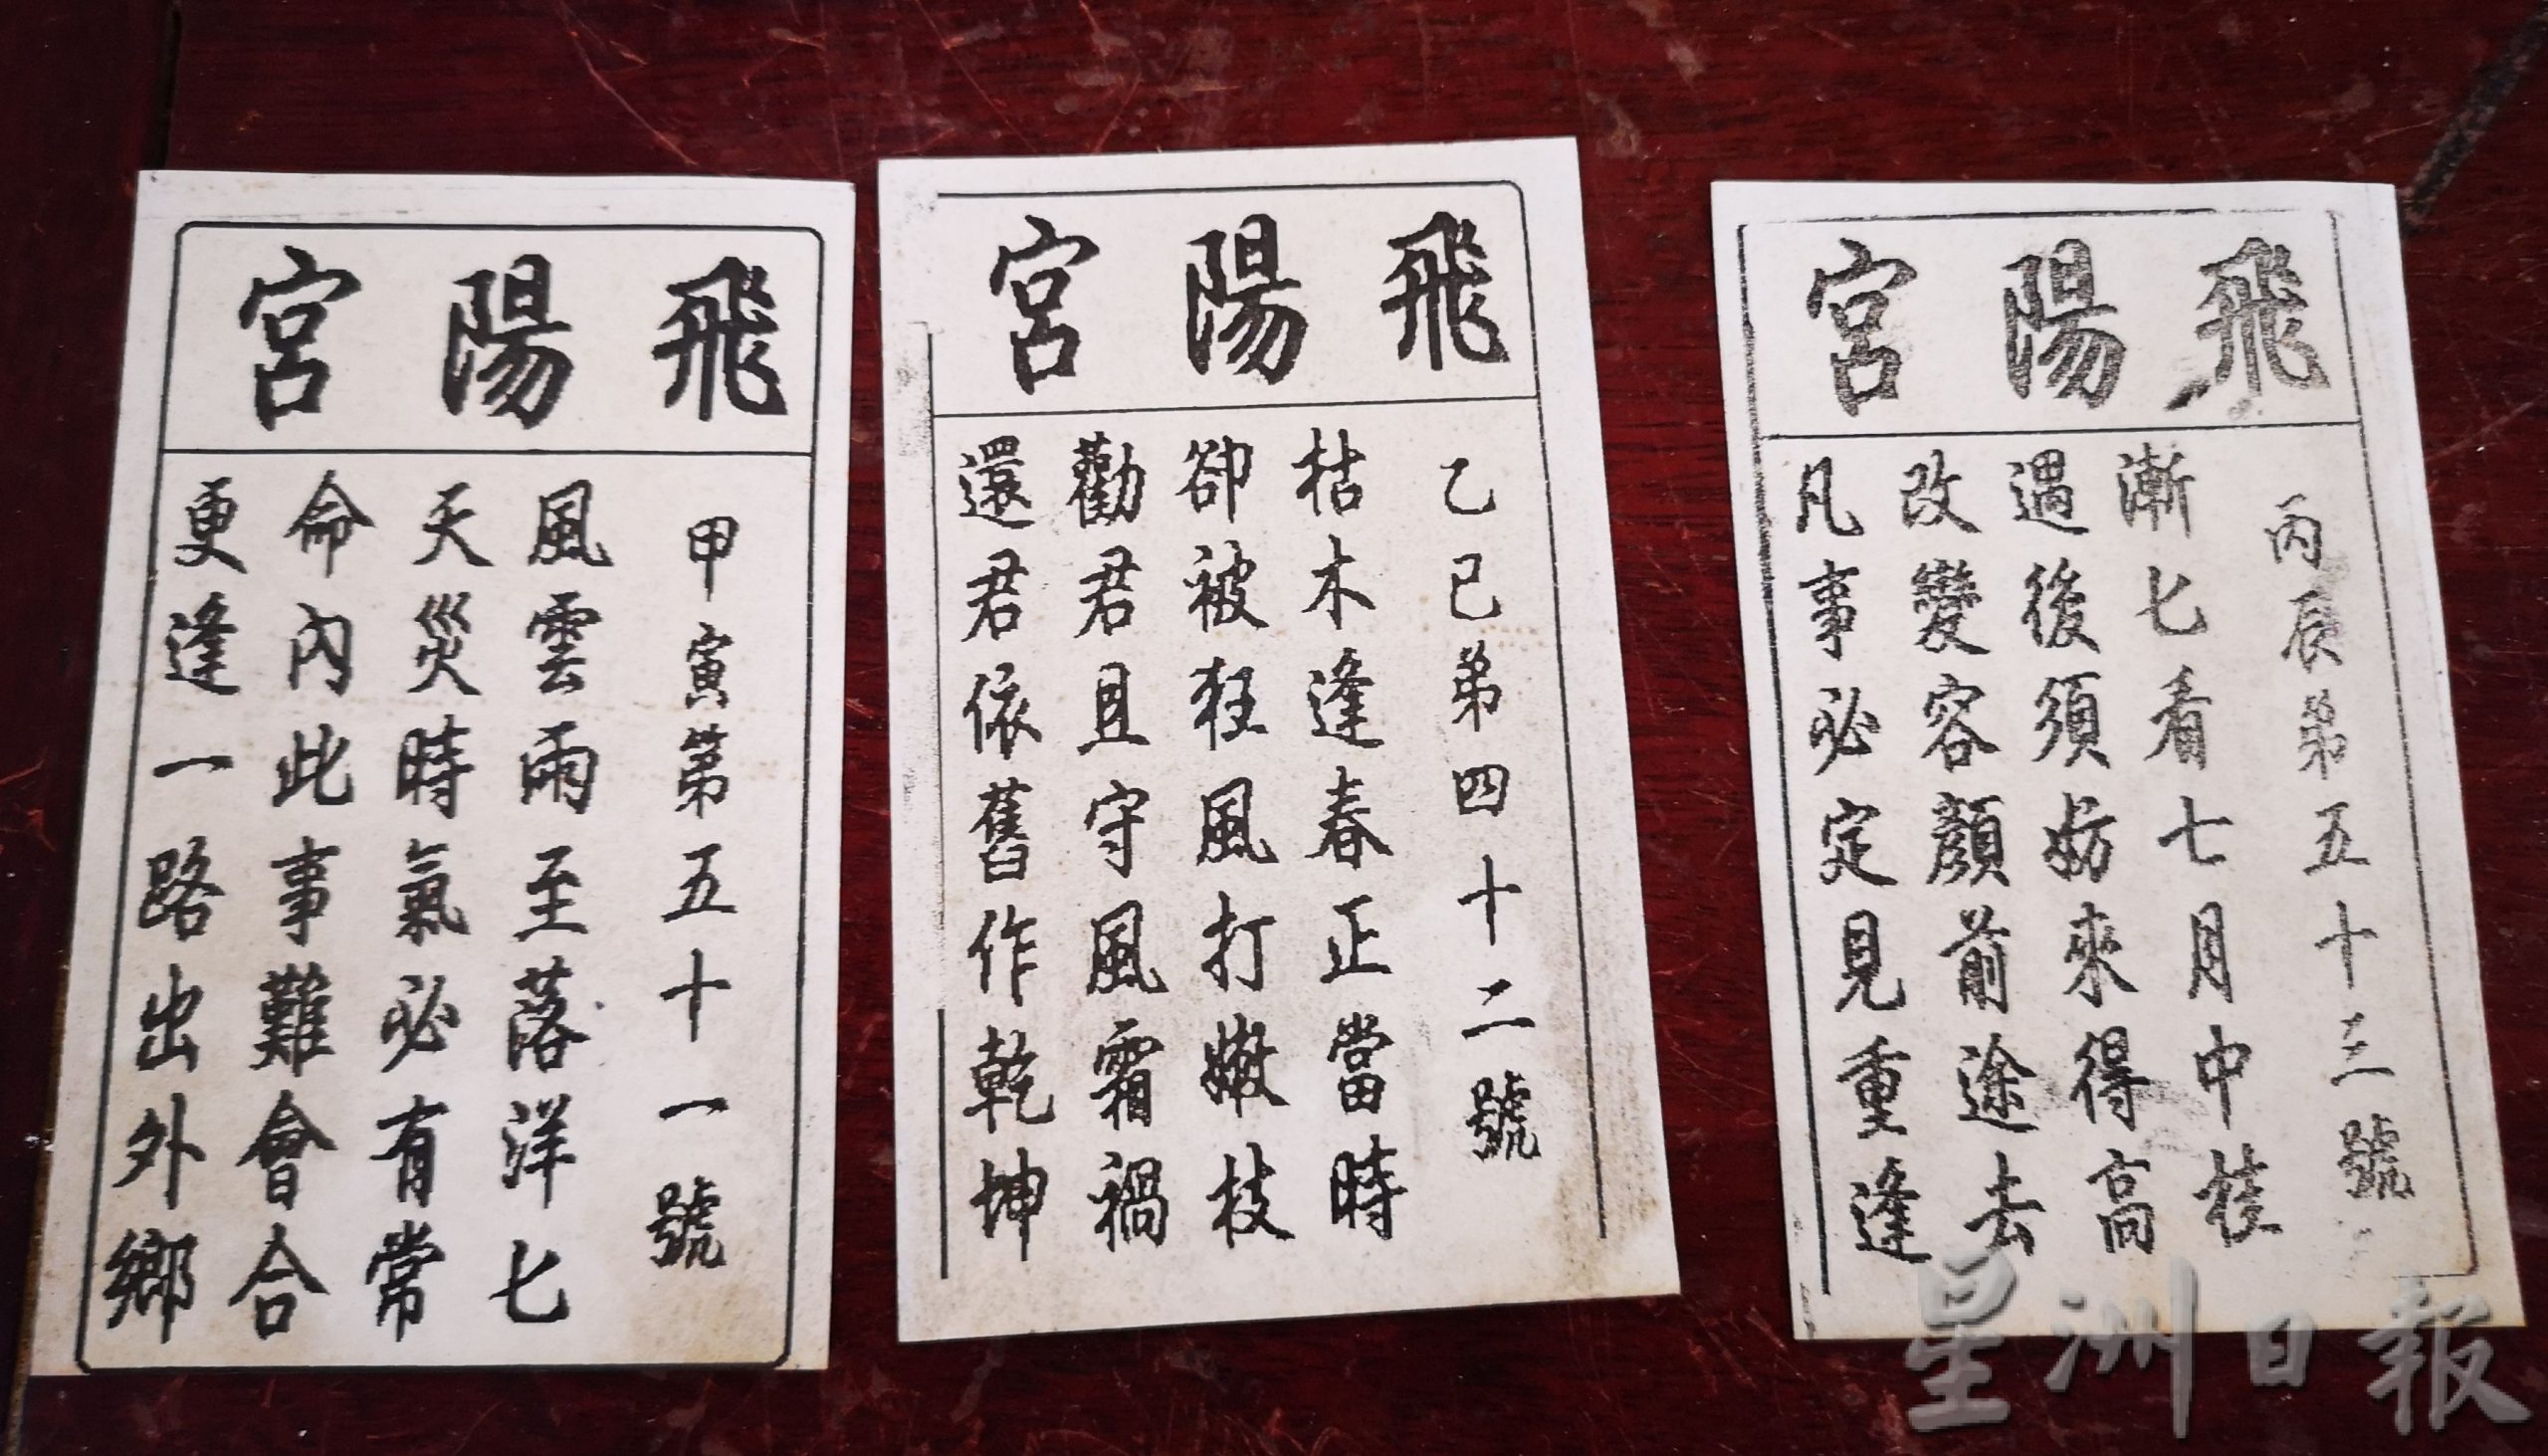 飛陽宮
甲寅第五十一號
風雲雨至落洋匕
天災時氣必有常
命內此事難會合
更逢一路出外鄉
飛陽宮
乙巳第四十二號
枯木逢春正當時
卻被狂風打嫩枝
勸君且守風霜禍
還君依舊作乾坤
飛陽宮
丙辰第五十三號
漸匕看七月中桂
遇後須妨來得高
改變容顏前途去
凡事必定見重逢
星洲日報